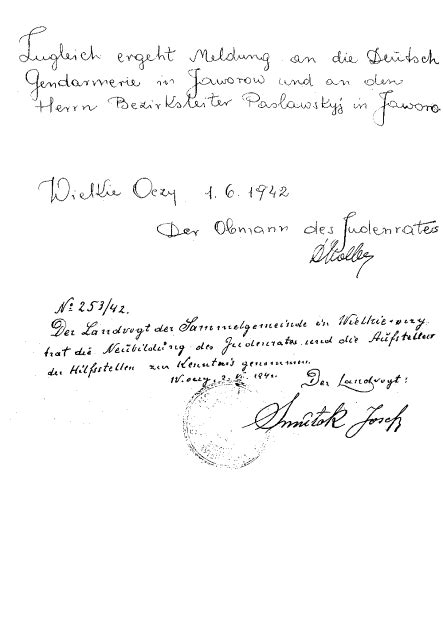 Zugleich ergeht Meldung an die Deutsch
Gendarmerie in Jaworow und an den
Herrn Bezirksleiter Paslawskyj in Jaworo
Wielkie Oczy 1.6.1942
Der Obmann des Judenrates
No 253/42.
Der Landvogt der Sammelgemeinde in Wielkie-oczy
hat die Neubildung des Judenrates und die Aufstellun
der Hilfsstellen zur Kenntnis genommen.
W. oczy,
Der Landvogt:
Josef